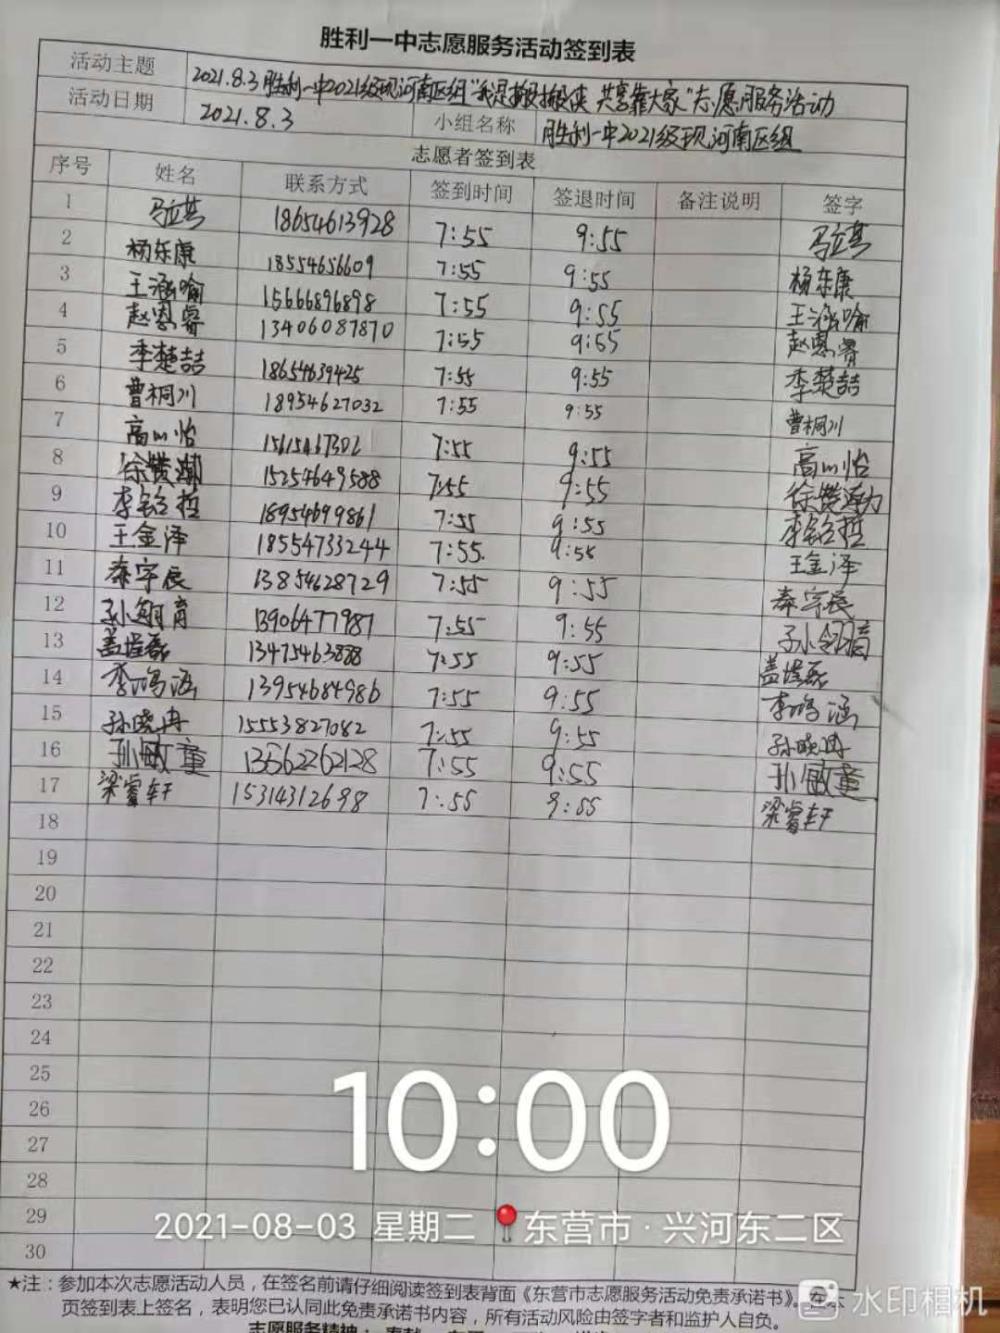 胜利一中志愿服务活动签到表
活动主题 2021.8.3胜利一中2021级现河南区组"我是搬搬侠 共享靠大家"志愿服务活动
活动日期 2021.8.3 小组名称 胜利一中2021级现河南区组
志愿者签到表
序号 姓名 联系方式 签到时间 签退时间 备注说明 签字
1 18654613928 7:55 9:55
2 杨东康 18554656609 7:55 9:55 杨东康
3 王涵喻 15666896898 7:55 9:55 王涵喻
4 赵恩睿 13406087870 7:55 9:55 赵恩睿
5 李楚喆 18654639425 7:55 9:55 李楚喆
6 曹桐川 18954627032 7:55 9:55 曹桐川
7 高山怡 7:55 9:55 高山怡
8 15254649588 7:55 9:55
9 李铭哲 18954699861 7:55 9:55 李铭哲
10 王金泽 18554733244 7:55. 9:55 王金泽
11 秦宇辰 13854628729 7:55 9:55 秦宇辰
12 孙翎育 13906477987 7:55 9:55 孙翎育
13 盖煜磊 13475463888 7:55 9:55 盖煜磊
14 李鸣涵 13954684986 7:55 9:55 李鸣涵
15 孙晓冉 15553827082 7:55 9:55 孙晓冉
16 孙敏童 13562262128 7:55 9:55 孙敏童
17 梁睿轩 15314312698 7:55 9:55 梁睿轩
18
19
20
21
22
23
24
25
26
27
28
29
30
10:00
2021-08-03 星期二 东营市·兴河东二区
★注：参加本次志愿活动人员，在签名前请仔细阅读签到表背面《东营市志愿服务活动免责承诺书》。在本
页签到表上签名，表明您已认同此免责承诺书内容，所有活动风险由签字者和监护人自负。
水印相机
志愿服务精神：奉献